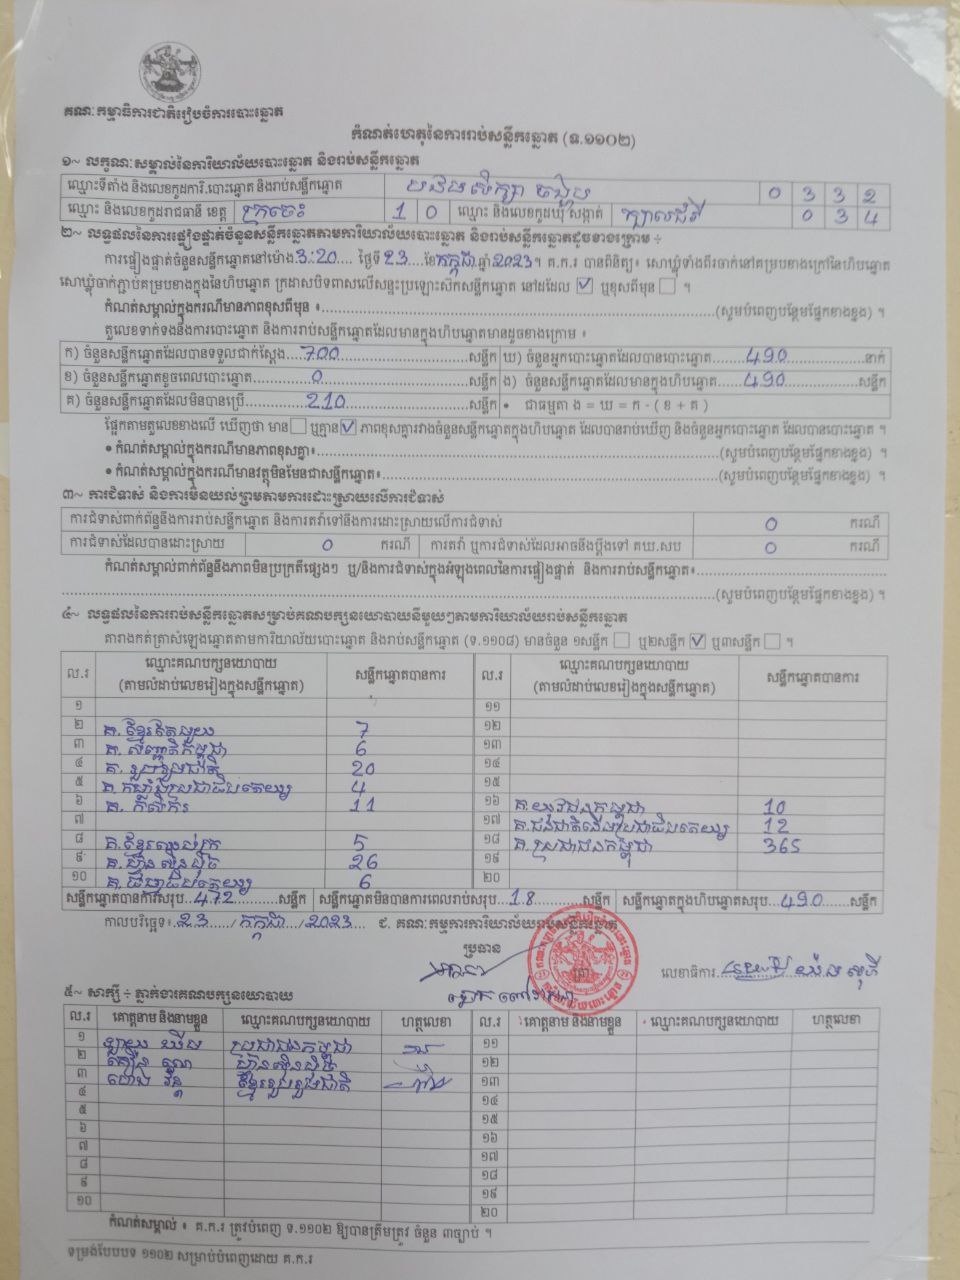 គណៈកម្មាធិការជាតិរៀបចំការបោះឆ្នោត
កំណត់ហេតុនៃការរាប់សន្លឹកឆ្នោត (ទ.១១០២)
១~ លក្ខណៈសម្គាល់នៃការិយាល័យបោះឆ្នោត និងរាប់សន្លឹកឆ្នោត
ឈ្មោះទីតាំង និងលេខកូដការិ.បោះឆ្នោត និងរាប់សន្លឹកឆ្នោត 0 3 3 2
ឈ្មោះ និងលេខកូដរាជធានី ខេត្ត ក្រចេះ 1 0 ឈ្មោះ និងលេខកូដឃុំ សង្កាត់ 0 3 4
២~ លទ្ធផលនៃការផ្ទៀងផ្ទាត់ចំនួនសន្លឹកឆ្នោតតាមការិយាល័យបោះឆ្នោត និងរាប់សន្លឹកឆ្នោតដូចខាងក្រោម ÷
ការផ្ទៀងផ្ទាត់ចំនួនសន្លឹកឆ្នោតនៅម៉ោង 3:20 ថ្ងៃទី 23 ខែ កក្កដា ឆ្នាំ 2023 ។ គ.ក.រ បានពិនិត្យ៖ សោឃ្លុំទាំងពីរចាក់នៅគម្របខាងក្រៅនៃហិបឆ្នោត
សោឃ្លុំចាក់ភ្ជាប់គម្របខាងក្នុងនៃហិបឆ្នោត ក្រដាសបិទពាសលើសន្ទះប្រឡោះសឹកសន្លឹកឆ្នោត នៅដដែល ☑ ឬខុសពីមុន ☐ ។
កំណត់សម្គាល់ក្នុងករណីមានភាពខុសពីមុន ៖ (សូមបំពេញបន្ថែមផ្នែកខាងខ្នង) ។
តួលេខទាក់ទងនឹងការបោះឆ្នោត និងការរាប់សន្លឹកឆ្នោតដែលមានក្នុងហិបឆ្នោតមានដូចខាងក្រោម ៖
ក) ចំនួនសន្លឹកឆ្នោតដែលបានទទួលជាក់ស្តែង 700 សន្លឹក ឃ) ចំនួនអ្នកបោះឆ្នោតដែលបានបោះឆ្នោត 490 នាក់
ខ) ចំនួនសន្លឹកឆ្នោតខូចពេលបោះឆ្នោត 0 សន្លឹក ង) ចំនួនសន្លឹកឆ្នោតដែលមានក្នុងហិបឆ្នោត 490 សន្លឹក
គ) ចំនួនសន្លឹកឆ្នោតដែលមិនបានប្រើ 210 សន្លឹក • ជាធម្មតា ង = ឃ = ក - ( ខ + គ )
ផ្អែកតាមតួលេខខាងលើ ឃើញថា មាន ☐ ឬគ្មាន ☑ ភាពខុសគ្នារវាងចំនួនសន្លឹកឆ្នោតក្នុងហិបឆ្នោត ដែលបានរាប់ឃើញ និងចំនួនអ្នកបោះឆ្នោត ដែលបានបោះឆ្នោត ។
• កំណត់សម្គាល់ក្នុងករណីមានភាពខុសគ្នា៖ (សូមបំពេញបន្ថែមផ្នែកខាងខ្នង) ។
• កំណត់សម្គាល់ក្នុងករណីមានវត្ថុមិនមែនជាសន្លឹកឆ្នោត៖ (សូមបំពេញបន្ថែមផ្នែកខាងខ្នង) ។
៣~ ការជំទាស់ និងការមិនយល់ព្រមតាមការដោះស្រាយលើការជំទាស់
ការជំទាស់ពាក់ព័ន្ធនឹងការរាប់សន្លឹកឆ្នោត និងការតវ៉ាទៅនឹងការដោះស្រាយលើការជំទាស់ 0 ករណី
ការជំទាស់ដែលបានដោះស្រាយ 0 ករណី ការតវ៉ា ឬការជំទាស់ដែលអាចនឹងប្តឹងទៅ គឃ.សប 0 ករណី
កំណត់សម្គាល់ពាក់ព័ន្ធនឹងភាពមិនប្រក្រតីផ្សេងៗ ឬ/និងការជំទាស់ក្នុងអំឡុងពេលនៃការផ្ទៀងផ្ទាត់ និងការរាប់សន្លឹកឆ្នោត៖
(សូមបំពេញបន្ថែមផ្នែកខាងខ្នង) ។
៤~ លទ្ធផលនៃការរាប់សន្លឹកឆ្នោតសម្រាប់គណបក្សនយោបាយនីមួយៗតាមការិយាល័យរាប់សន្លឹកឆ្នោត
តារាងកត់ត្រាសំឡេងឆ្នោតតាមការិយាល័យបោះឆ្នោត និងរាប់សន្លឹកឆ្នោត (ទ.១១០៨) មានចំនួន ១សន្លឹក ☐ ឬ២សន្លឹក ☑ ឬ៣សន្លឹក ☐ ។
ល.រ ឈ្មោះគណបក្សនយោបាយ (តាមលំដាប់លេខរៀងក្នុងសន្លឹកឆ្នោត) សន្លឹកឆ្នោតបានការ ល.រ ឈ្មោះគណបក្សនយោបាយ (តាមលំដាប់លេខរៀងក្នុងសន្លឹកឆ្នោត) សន្លឹកឆ្នោតបានការ
១ ១១
២ គ. ខ្មែរតែមួយ 7 ១២
៣ គ. សញ្ជាតិកម្ពុជា 6 ១៣
៤ គ. ខ្មែររួបរួមជាតិ 20 ១៤
៥ គ. កម្លាំងប្រជាធិបតេយ្យ 4 ១៥
៦ គ. កសិករ 11 ១៦ គ. យុវជនកម្ពុជា 10
៧ ១៧ គ. ជនជាតិដើមប្រជាធិបតេយ្យ 12
៨ គ. ខ្មែរឈប់ក្រ 5 ១៨ គ. ប្រជាជនកម្ពុជា 365
៩ គ. ហ៊្វុនស៊ិនប៉ិច 26 ១៩
១០ គ. ធម្មាធិបតេយ្យ 6 ២០
សន្លឹកឆ្នោតបានការសរុប 472 សន្លឹក សន្លឹកឆ្នោតមិនបានការពេលរាប់សរុប 18 សន្លឹក សន្លឹកឆ្នោតក្នុងហិបឆ្នោតសរុប 490 សន្លឹក
កាលបរិច្ឆេទ៖ 23 / កក្កដា / 2023 ជ. គណៈកម្មការការិយាល័យរាប់សន្លឹកឆ្នោត
ប្រធាន
លេខាធិការ
៥~ សាក្សី ÷ ភ្នាក់ងារគណបក្សនយោបាយ
ល.រ គោត្តនាម និងនាមខ្លួន ឈ្មោះគណបក្សនយោបាយ ហត្ថលេខា ល.រ គោត្តនាម និងនាមខ្លួន ឈ្មោះគណបក្សនយោបាយ ហត្ថលេខា
១ ប្រជាជនកម្ពុជា ១១
២ ហ៊្វុនស៊ិនប៉ិច ១២
៣ ខ្មែររួបរួមជាតិ ១៣
៤ ១៤
៥ ១៥
៦ ១៦
៧ ១៧
៨ ១៨
៩ ១៩
១០ ២០
កំណត់សម្គាល់ ៖ គ.ក.រ ត្រូវបំពេញ ទ.១១០២ ឱ្យបានត្រឹមត្រូវ ចំនួន ៣ច្បាប់ ។
ទម្រង់បែបបទ ១១០២ សម្រាប់បំពេញដោយ គ.ក.រ